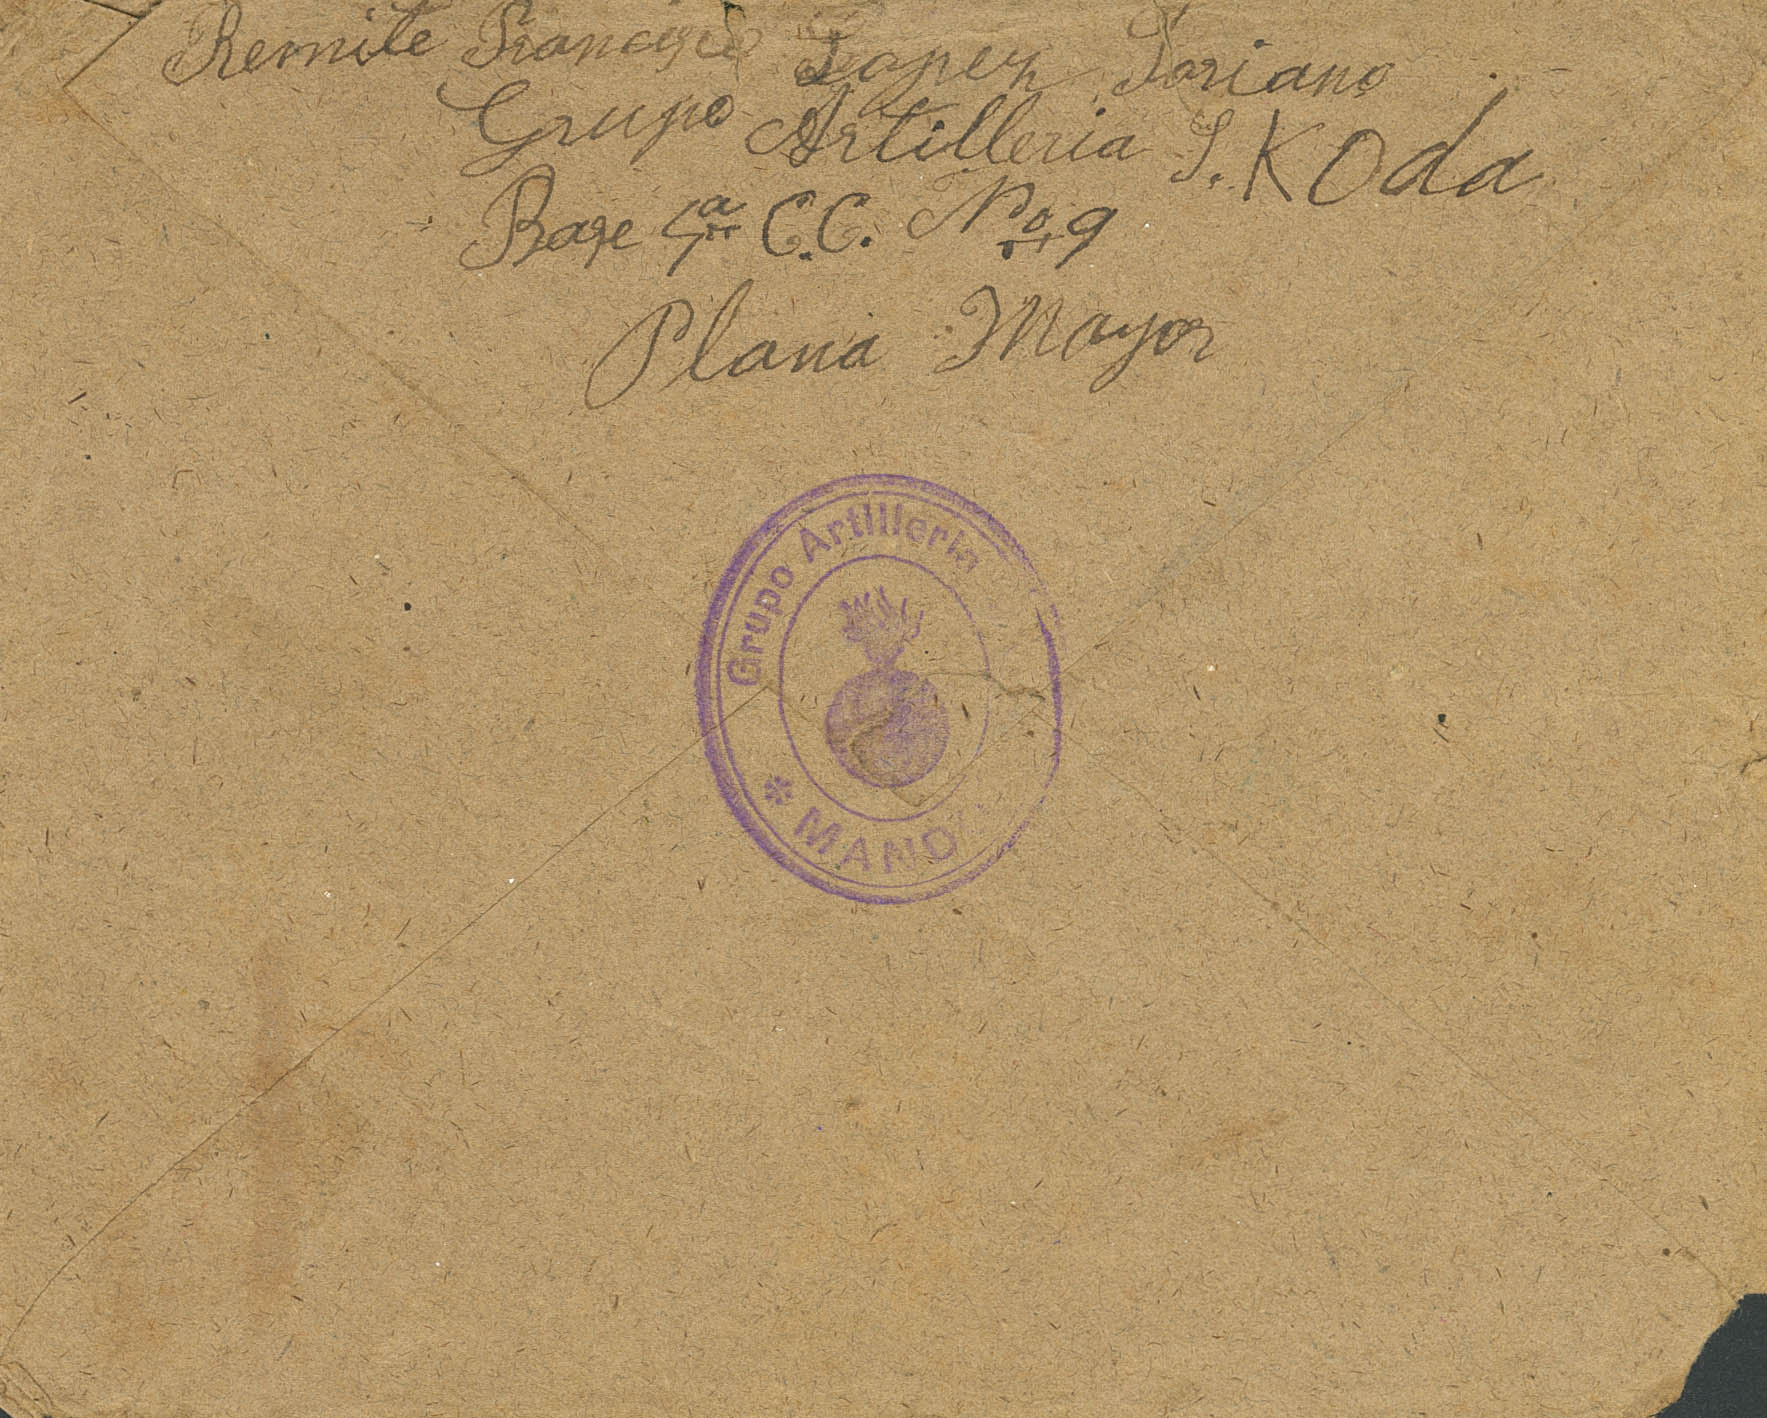 Remite Francisco Lopez Soriano
Grupo Artilleria S.KOda
Base 5ª C.C. Nº 9
Plana Mayor
Grupo Artilleria
* MANDO